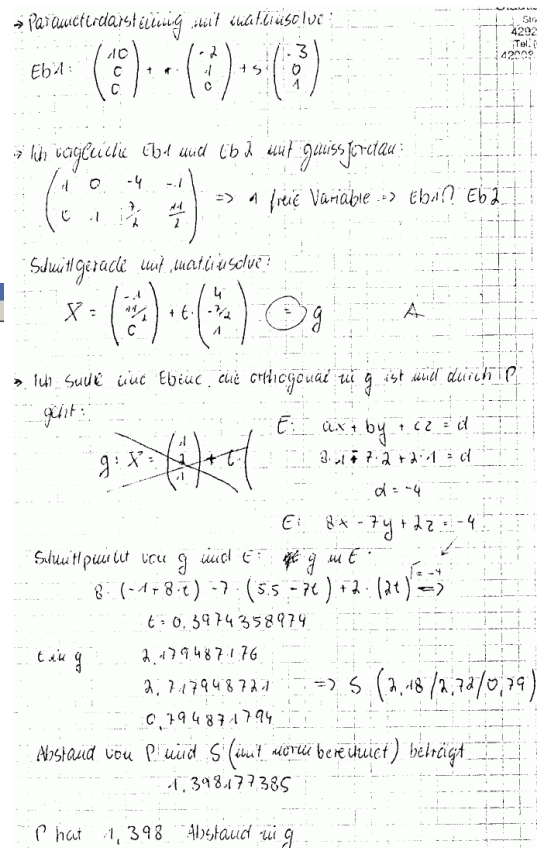 → Parameterdarstellung mit mathinsolve:
Eb1: (10 0 0) + r · (-2 1 0) + s · (-3 0 1)
→ Ich vergleiche Eb1 und Eb2 mit gaussjordan:
(1 0 -4 -1
0 1 7/2 11/2) => 1 freie Variable => Eb1 ∩ Eb2
Schnittgerade mit mathinsolve:
X = (-1 11/2 0) + t · (4 -7/2 1) = g A
→ Ich suche eine Ebene, die orthogonal zu g ist und durch P
geht:
E: ax + by + cz = d
g: X = (1 2 1) + t · (
8·1 - 7·2 + 2·1 = d
d = -4
E: 8x - 7y + 2z = -4
Schnittpunkt von g und E: g in E:
8·(-1+8·t) - 7·(5.5-7t) + 2·(2t) = -4 =>
t = 0.3974358974
t in g 2,179487176
2,717948721 => S (2,18/2,72/0,79)
0,794871794
Abstand von P und S (mit norm berechnet) beträgt
1,398177385
P hat 1,398 Abstand zu g